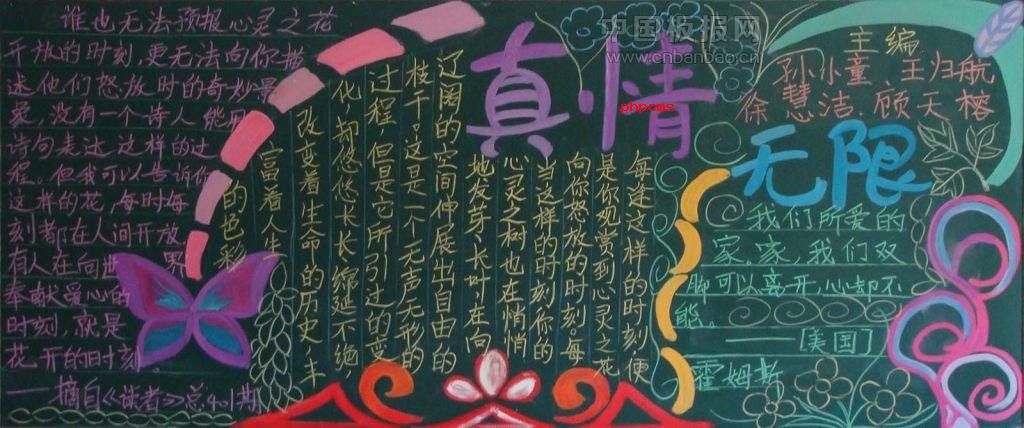 谁也无法预报心灵之花
开放的时刻,更无法向你描
述他们怒放时的奇妙景
象,没有一个诗人能用
诗句表达这样的过
程。但我可以告诉你
这样的花,每时每
刻都在人间开放。
有人在向世界
奉献爱心的
时刻,就是
花开的时刻
——摘自《读者》总401期
真情
无限
每逢这样的时刻便
是你观赏到心灵之花
向你怒放的时刻。每
当这样的时刻你的
心灵之树也在悄悄
地发芽、长叶,在向
辽阔的空间伸展出自由的
枝干。这是一个无声无形的
过程,但是它所引过的变
化,却悠悠长长,绵延不绝
改变着生命的历史,丰
富着人生
的色彩
主编
孙小童、王归航
徐慧洁、顾天榕
我们所爱的
家,家,我们双
脚可以离开,心却不
能。
——[美国]
霍姆斯
中国板报网
www.cnbanbao.cn
phpcms